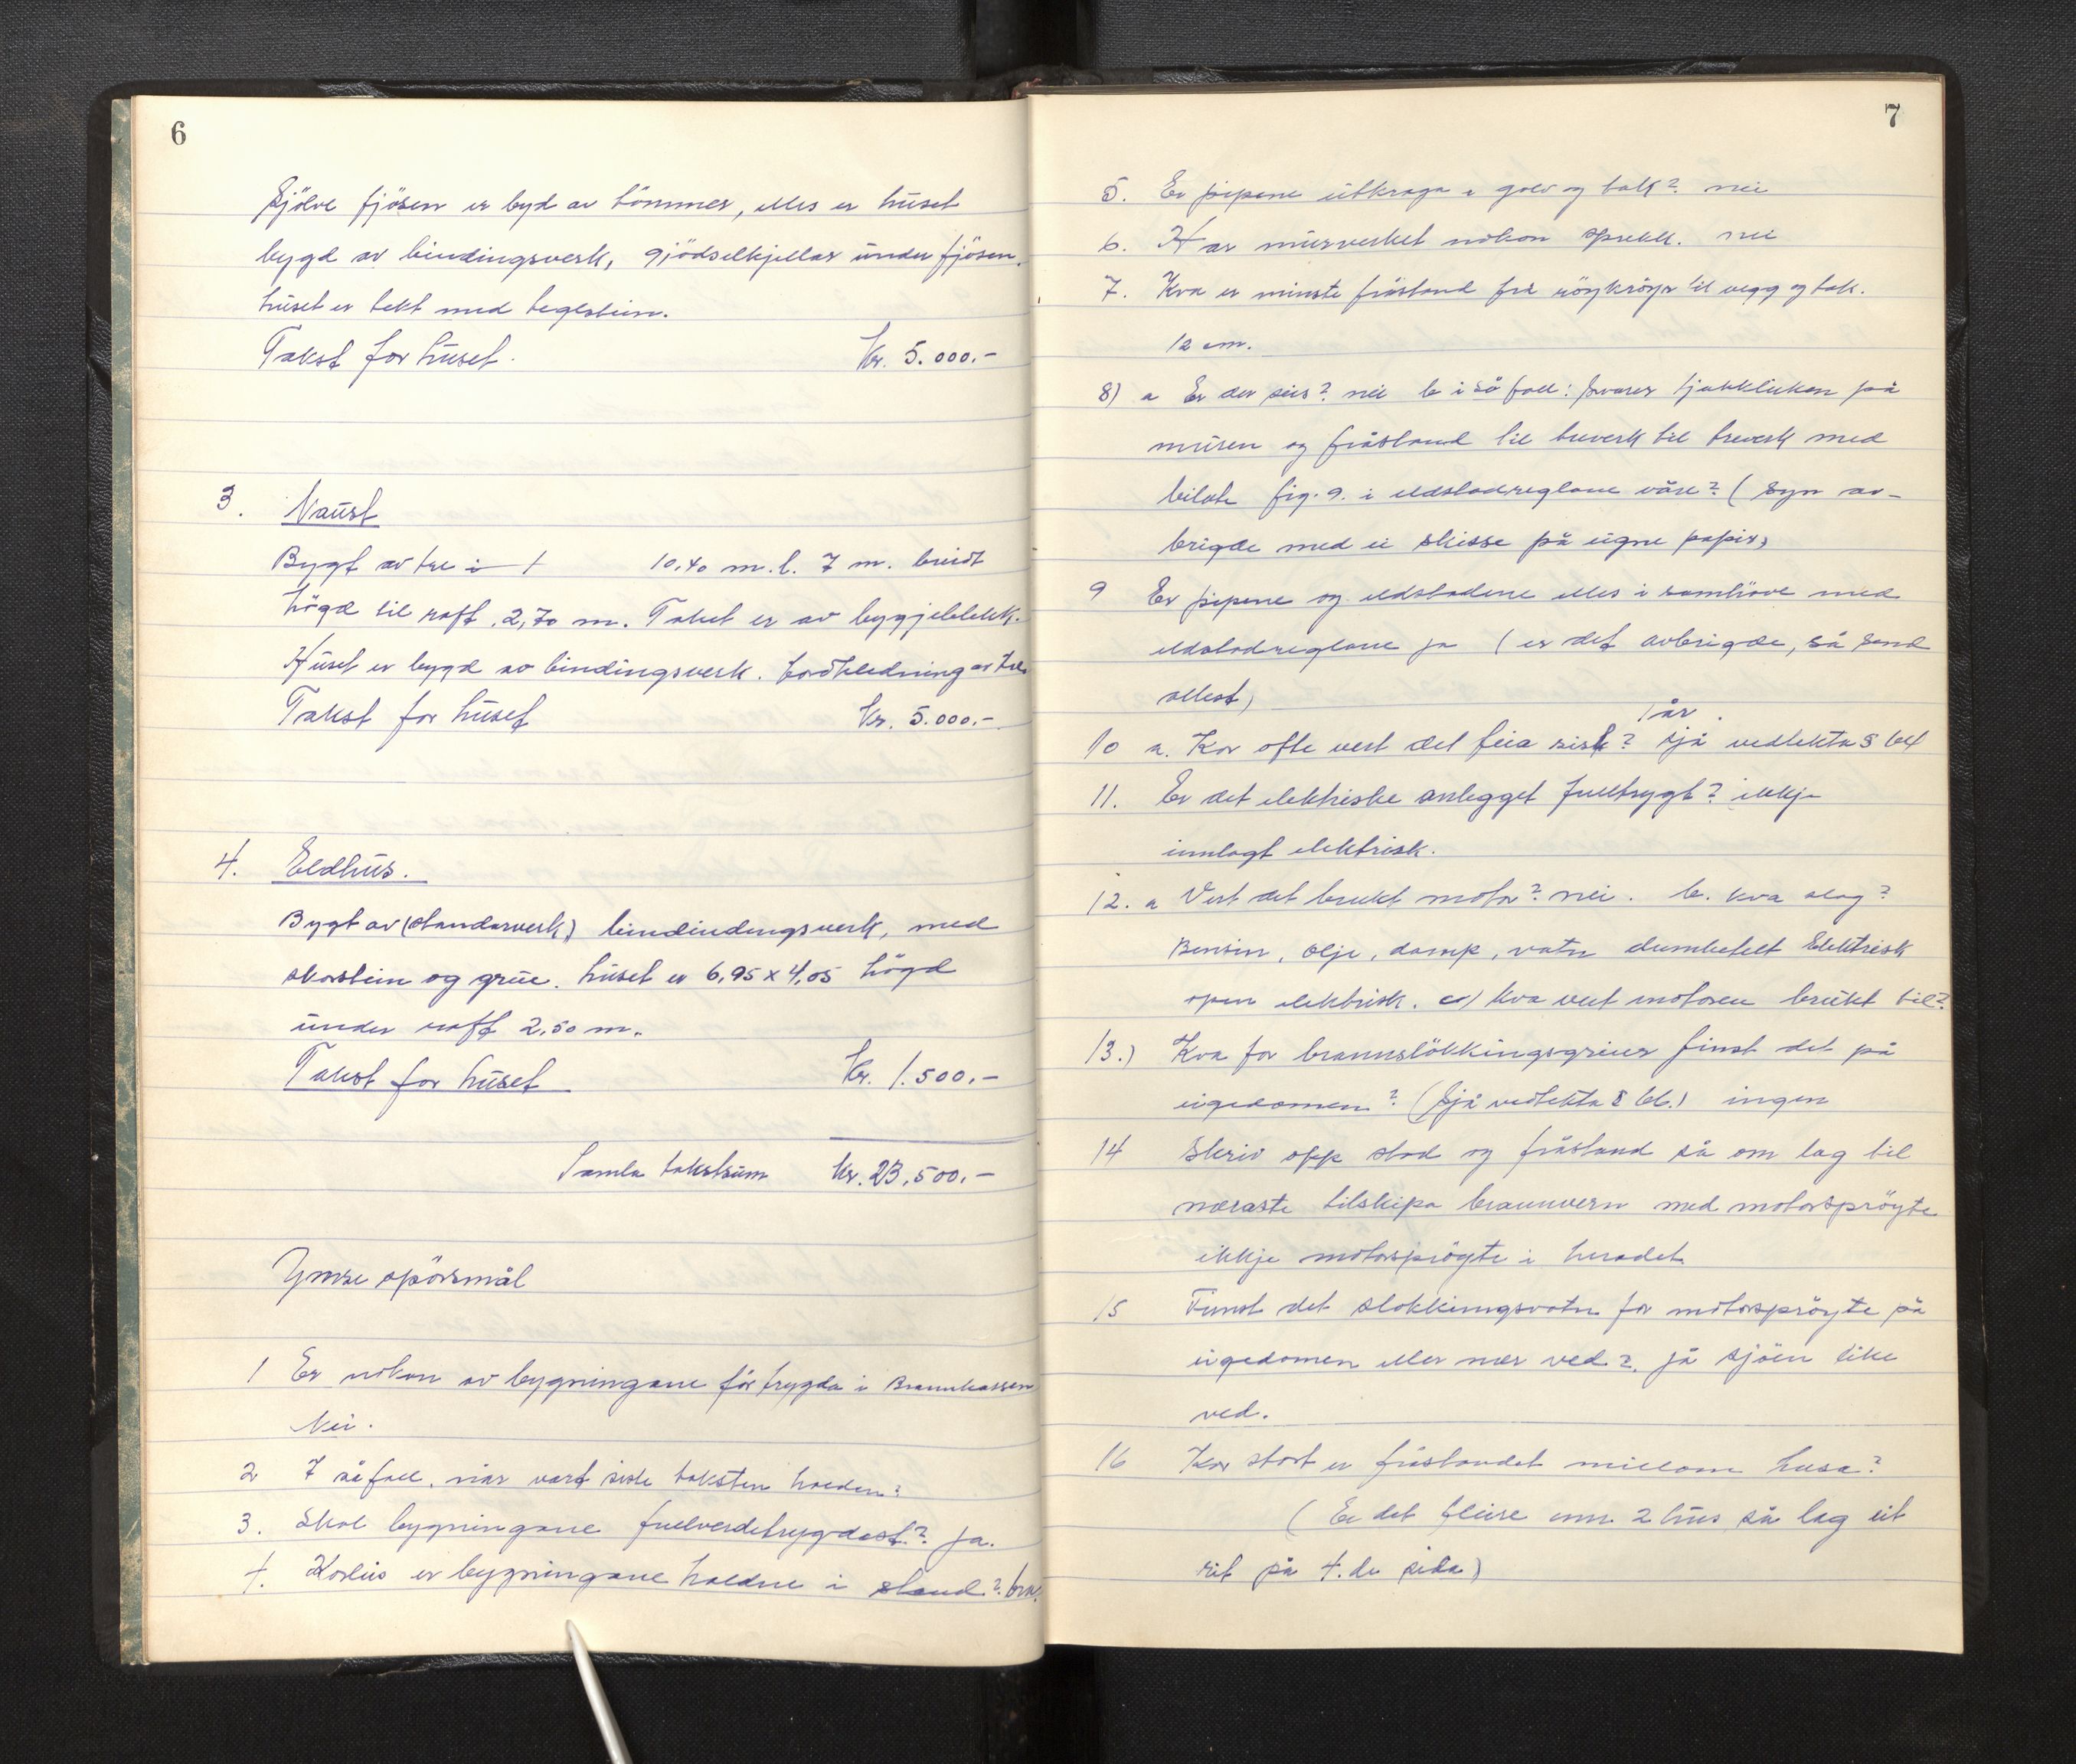 6
Sjölve fjösen er byd av tömmer, elles er huset
bygd av bindingsverk, gjödselkjellar under fjösen.
huset er tekt med teglstein.
Takst for huset. kr. 5.000.-
3. Naust
Bygt av tre i 1 10,40 m. l. 7 m. breidt
högd til raft 2,70 m. Taket er av bygjeblekk.
Huset er bygd av bindingsverk. bordkledning av tre
Takst for huset kr. 5.000.-
4. Eldhus.
Bygt av (standarverk) bindindingsverk, med
skorstein og grue. huset er 6,95 x 4,05 högd
under raft 2.50 m.
Takst for huset kr. 1.500.-
Samla takstsum kr. 23.500.-
Ymse spörsmål
1 Er nokon av bygningane för trygda i Brannkassen
Nei.
2 I så fall, når vart siste taksten halden?
3. Skal bygningane fullverdetrygdast? ja.
4. Korleis er bygningane haldne i stand? bra.
7
5. Er pipene utkraga i golv og tak? nei
6. Har murverket nokon sprekk. nei
7. Kva er minste fråstand frå röykröyr til vegg og tak.
12 cm.
8) a Er der seis? nei b i så fall: svarer tjukkleiken på
muren og fråstand til treverk til treverk med
bilete fig. 9. i eldstadreglane våre? (Syn av-
brigde med ei skisse på eigne papir)
9 Er pipene og eldstadene elles i samhöve med
eldstadreglane ja (er det avbrigde, så send
attest)
1 år.
10 a. Kor ofte vert det feia sist? sjå vedtekta § 64
11. Er det elektriske anlegget fulltrygt? ikkje
innlagt elektrisk.
12. a Vert det brukt motor? nei. b. kva slag?
Bensin, olje, damp, vatn elumbetelt Elektrisk
open elektrisk. c) kva vert motoren brukt til?
13.) Kva for brannslökkingsgreier finst det på
eigedomen? (Sjå vedtekta § 66.) ingen
14 Skriv opp stad og fråstand så om lag til
næraste tilskipa brannvern med motorspröyte
ikkje motorspröyte i heradet
15 Finst det slokkingsvatn for motorspröyte på
eigedomen eller nær ved? ja sjöen like
ved.
16 Kor stort er fråstandet millom husa?
(Er det fleire enn 2 hus så lag eit
rit på 4. de sida)